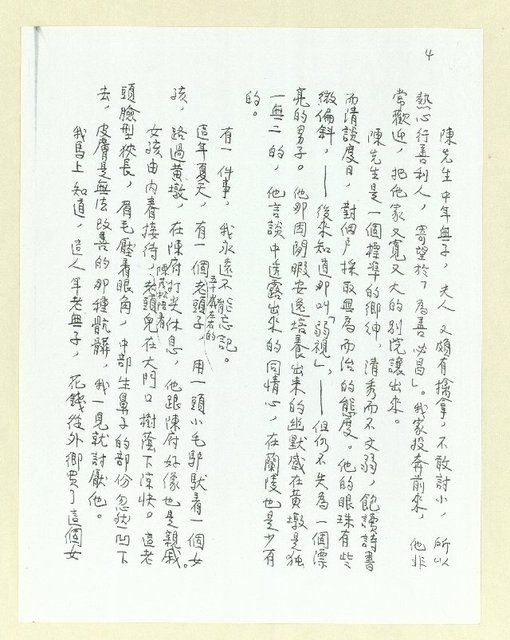 4
陳先生中年無子，夫人又頗有擒拿，不敢討小，所以
熱心行善利人，寄望於「為善必昌」。我家投奔前來，他非
常歡迎，把他家又寬又大的別院讓出來。
陳先生是一個標準的鄉紳，清秀而不文弱，飽讀詩書
而清談度日，對佃戶採取無為而治的態度。他的眼珠有些
微偏斜，——後來知道那叫「弱視」，——但仍不失為一個漂
亮的男子。他那因閒暇安逸培養出來的幽默感在黃墩是獨
一無二的，他言談中透露出來的同情心，在蘭陵也是少有
的。
有一件事，我永遠不能忘記。
這年夏天，有一個五十歲左右的老頭子，用一頭小毛驢馱着一個女
孩，路過黃墩，在陳府打尖休息，他跟陳府好像也是親戚。
女孩由內眷接待，陳茂松陪着老頭兒在大門口樹蔭下涼快。這老
頭臉型狹長，眉毛壓着眼角，中部生鼻子的部份忽然凹下
去，皮膚是無法改善的那種骯髒，我一見就討厭他。
我馬上知道，這人年老無子，花錢從外鄉買了這個女